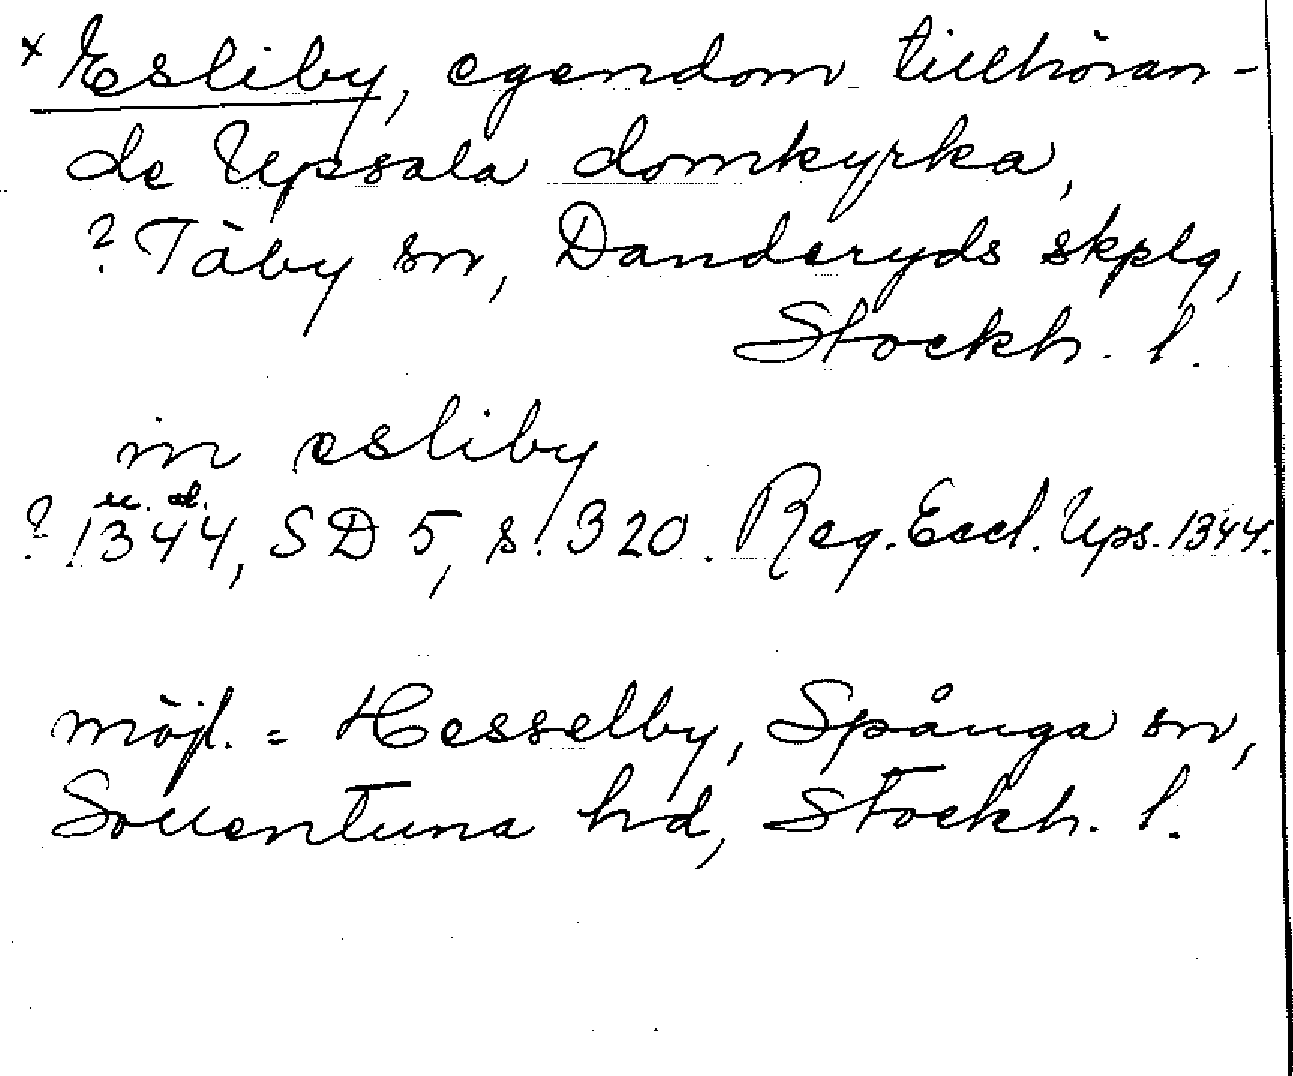 × Esliby, egendom tillhöran-
de Upsala domkyrka,
? Täby sn, Danderyds skplg,
Stockh. l.
in esliby
u. d.
? 1344, SD 5, s. 320. Reg. Eccl. Ups. 1344.
möjl. = Hesselby, Spånga sn,
Sollentuna hd, Stockh. l.